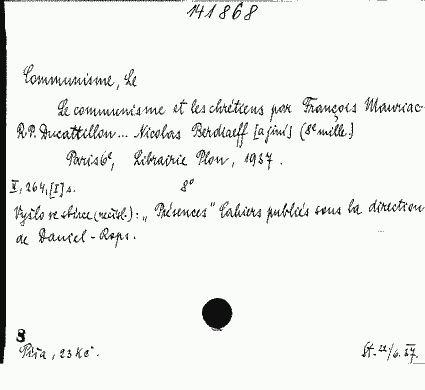 141868
Communisme, Le
Le communisme et les chrétiens par François Mauriac-
R.P. Ducattillon... Nicolas Berdiaeff [a jiní] (8e mille.)
Paris 6e, Librairie Plon, 1937.
II, 264, [I] s. 8°
Vyšlo ve sbírce (nečísl.): „Présences" Cahiers publiés sous la direction
de Daniel-Rops.
8
Píša, 23 Kč.
St. 22/6. 37.